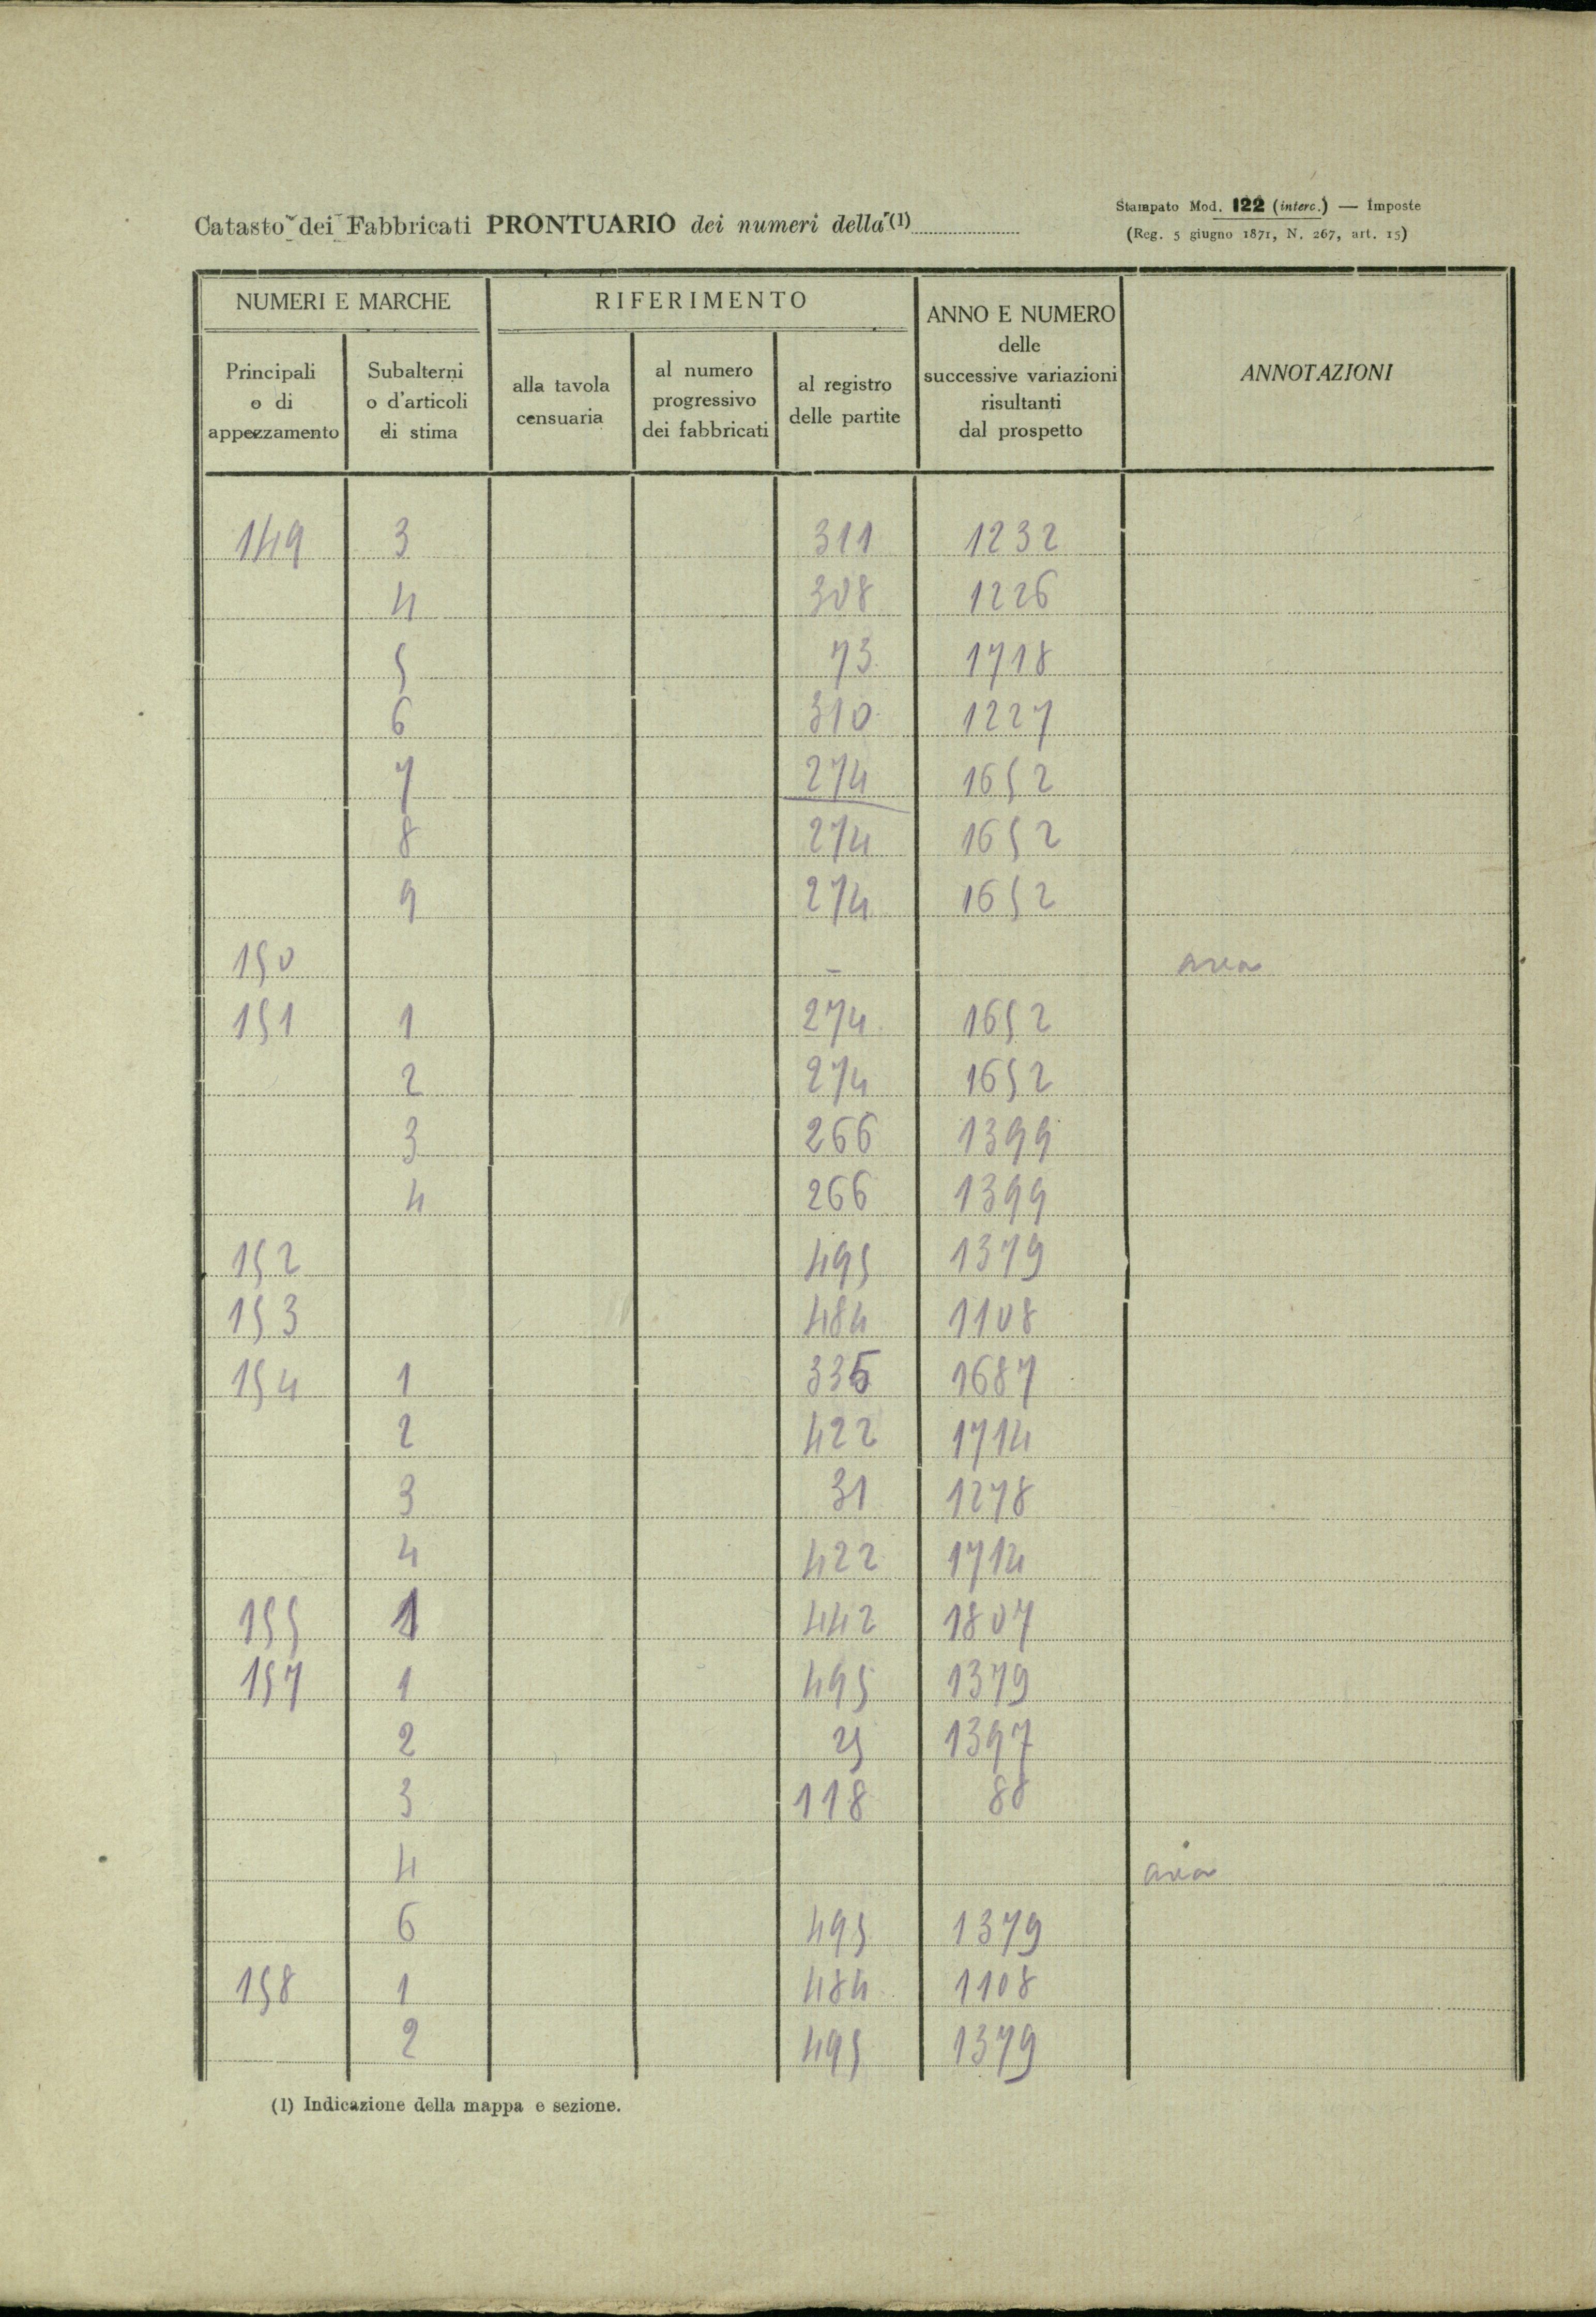 Catasto dei Fabbricati PRONTUARIO dei numeri della (1)
Stampato Mod. 122 (interc.) — Imposte
(Reg. 5 giugno 1871, N. 267, art. 15)
NUMERI E MARCHE
Principali o di appezzamento
Subalterni o d'articoli di stima
RIFERIMENTO
alla tavola censuaria
al numero progressivo dei fabbricati
al registro delle partite
ANNO E NUMERO delle successive variazioni risultanti dal prospetto
ANNOTAZIONI
149 3 311 1232
4 308 1226
5 73 1718
6 310 1227
7 274 1652
8 274 1652
9 274 1652
150 – area
151 1 274 1652
2 274 1652
3 266 1399
4 266 1399
152 495 1379
153 484 1108
154 1 335 1687
2 422 1714
3 31 1278
4 422 1714
155 1 442 1807
157 1 495 1379
2 25 1397
3 118 88
4 area
6 495 1379
158 1 484 1108
2 495 1379
(1) Indicazione della mappa e sezione.